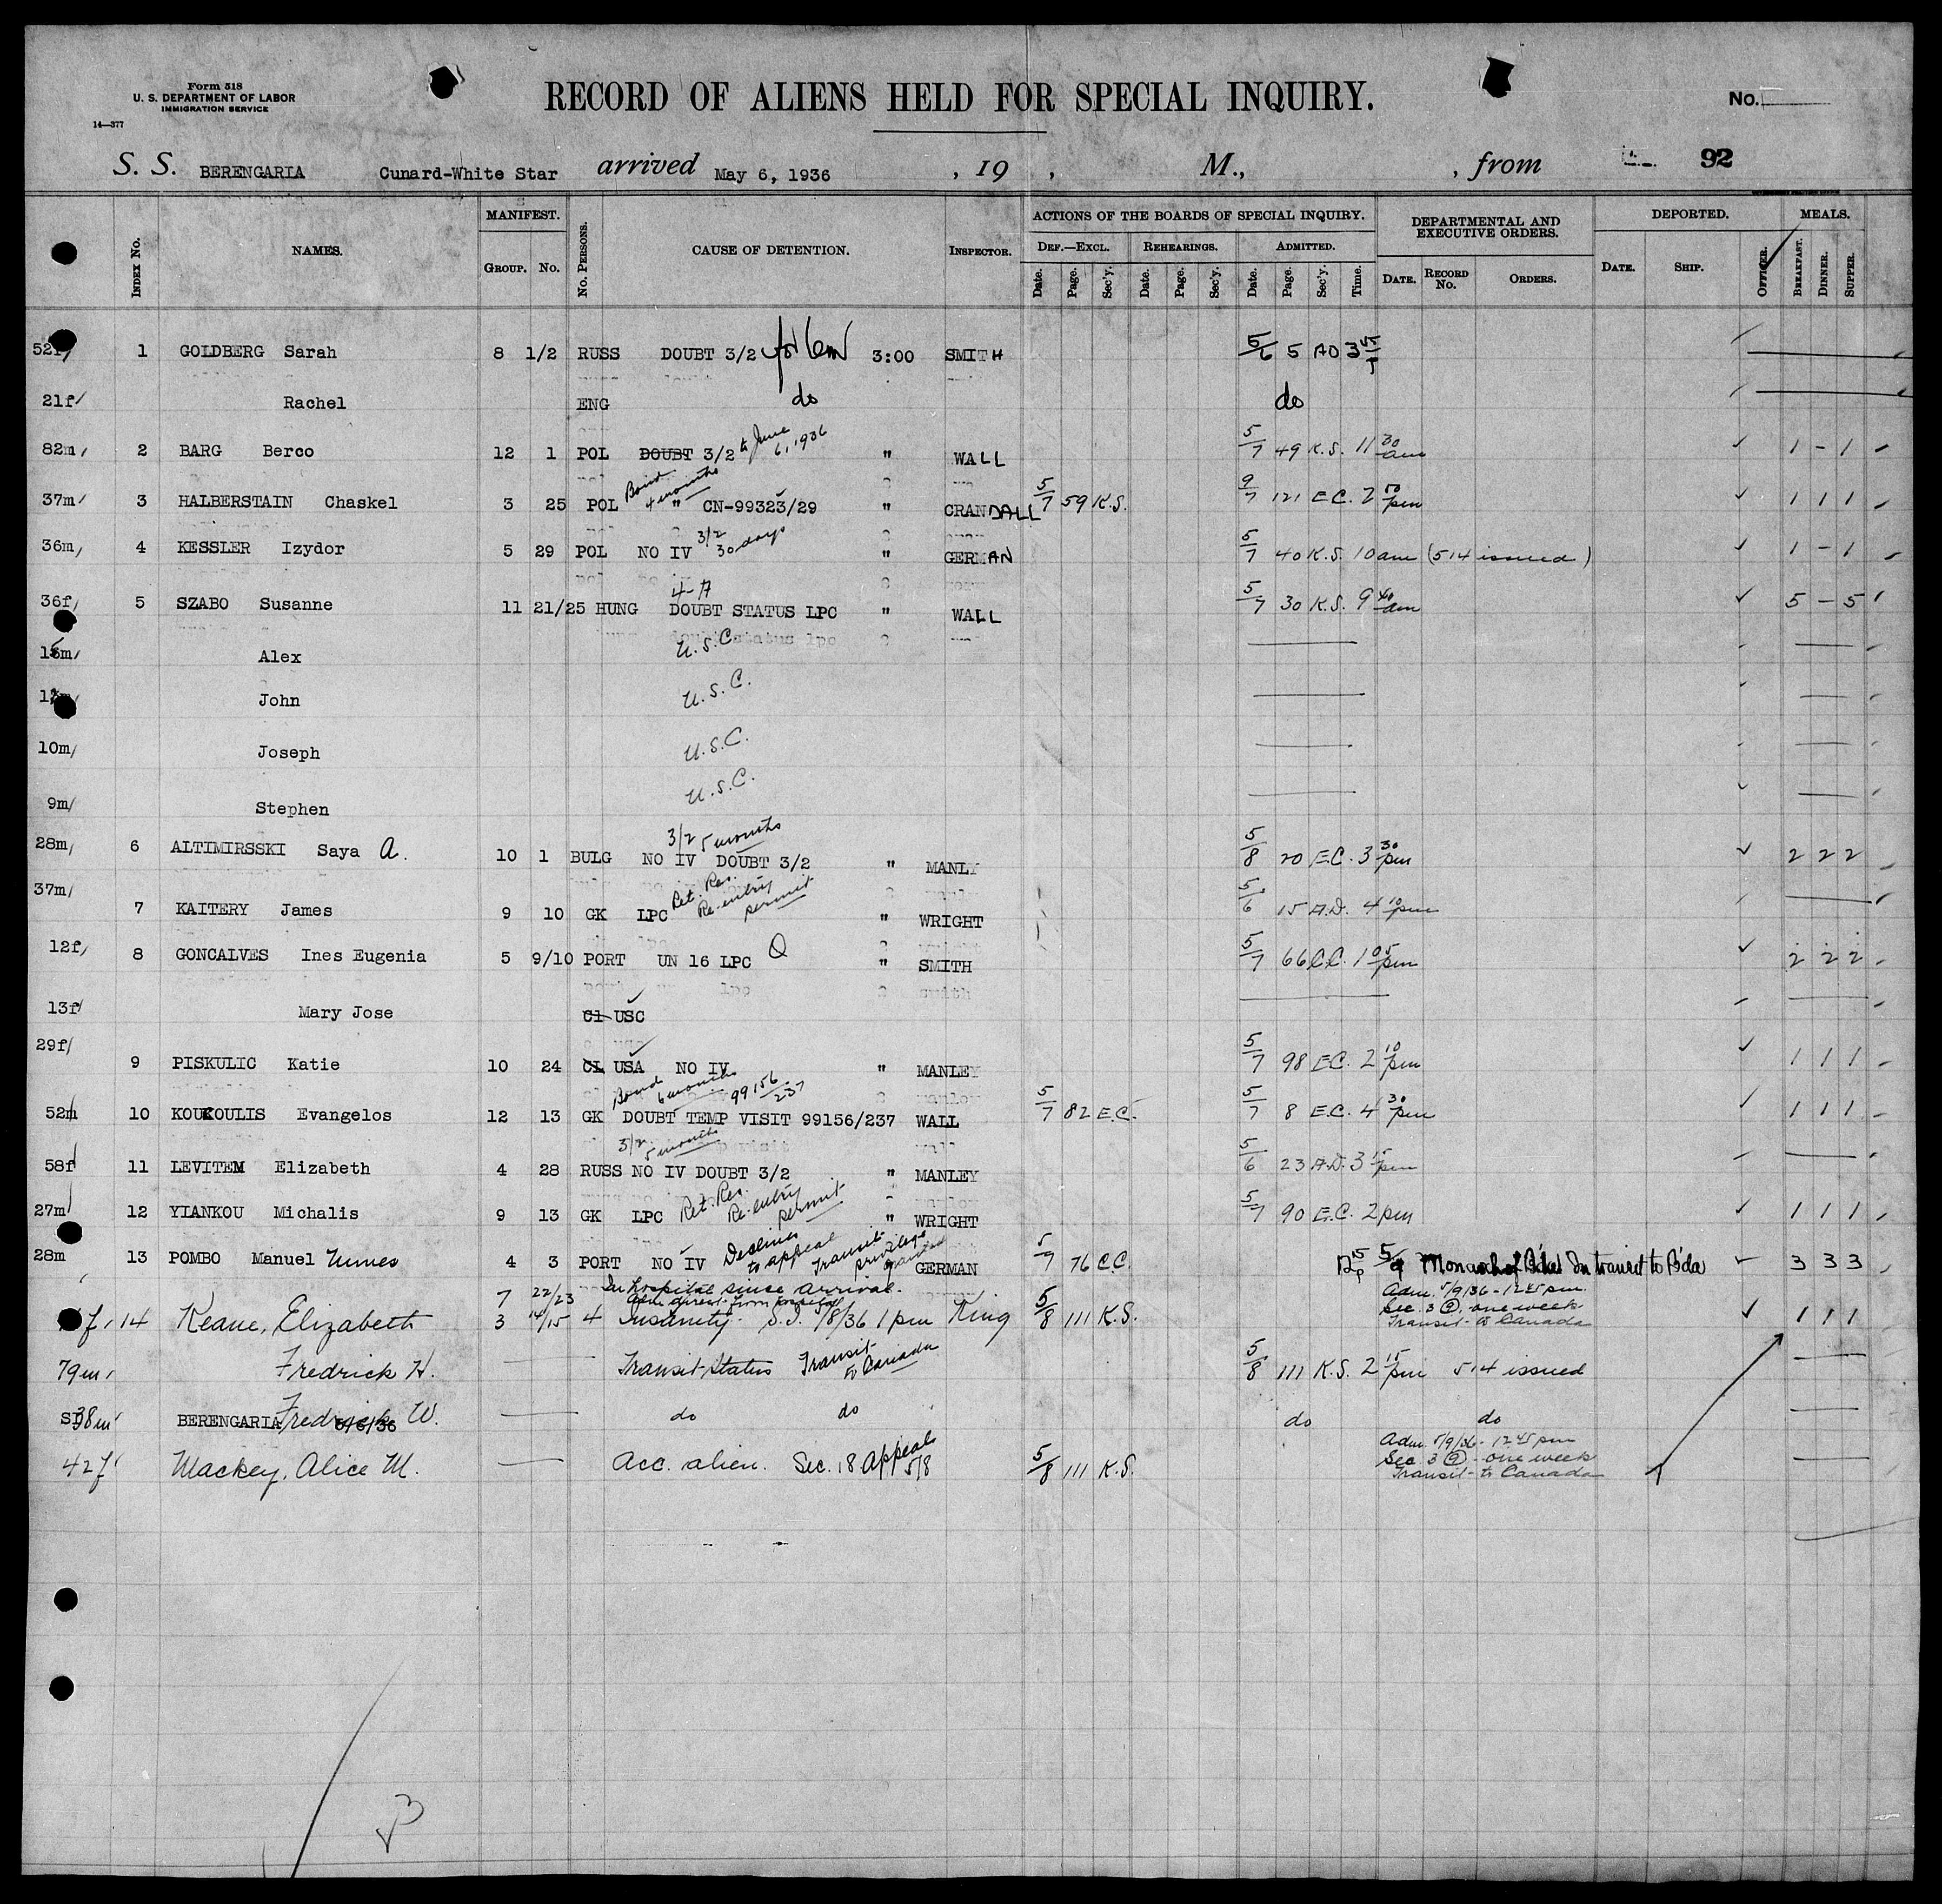 Form 518
U. S. DEPARTMENT OF LABOR
IMMIGRATION SERVICE
14—377
RECORD OF ALIENS HELD FOR SPECIAL INQUIRY.
No.
S. S. BERENGARIA Cunard-White Star arrived May 6, 1936 , 19 , M., , from 92
INDEX No. NAMES. MANIFEST. GROUP. No. No. PERSONS. CAUSE OF DETENTION. INSPECTOR. ACTIONS OF THE BOARDS OF SPECIAL INQUIRY. DEF.—EXCL. Date. Page. Sec'y. REHEARINGS. Date. Page. Sec'y. ADMITTED. Date. Page. Sec'y. Time. DEPARTMENTAL AND EXECUTIVE ORDERS. DATE. RECORD No. ORDERS. DEPORTED. DATE. SHIP. OFFICER. MEALS. BREAKFAST. DINNER. SUPPER.
52f 1 GOLDBERG Sarah 8 1/2 RUSS DOUBT 3/2 3:00 SMITH 5/6 5 AD 3
21f Rachel ENG do do
82m 2 BARG Berco 12 1 POL DOUBT 3/2 to June 6, 1936 " WALL 5/7 49 K.S. 11 30 am 1 - 1
37m 3 HALBERSTAIN Chaskel 3 25 POL Bond 4 months " CN-99323/29 " CRANDALL 5/7 59 K.S. 9/7 121 E.C. 2 50 pm 1 1 1
36m 4 KESSLER Izydor 5 29 POL NO IV 3/2 30 days " GERMAN 5/7 40 K.S. 10 am (514 issued) 1 - 1
36f 5 SZABO Susanne 11 21/25 HUNG 4-A DOUBT STATUS LPC " WALL 5/7 30 K.S. 9 40 am 5 - 5
Alex U.S.C
John U.S.C.
10m Joseph U.S.C.
9m Stephen U.S.C.
28m 6 ALTIMIRSSKI Saya A. 10 1 BULG NO IV DOUBT 3/2 3/2 5 months " MANLY 5/8 20 E.C. 3 30 pm 2 2 2
37m 7 KAITERY James 9 10 GK LPC Ret. Res. Re-entry permit " WRIGHT 5/6 15 A.D. 4 10 pm
12f 8 GONCALVES Ines Eugenia 5 9/10 PORT UN 16 LPC " SMITH 5/7 66 C.C. 1 05 pm 2 2 2
13f Mary Jose Cl USC
29f 9 PISKULIC Katie 10 24 CL USA NO IV " MANLEY 5/7 98 E.C. 2 10 pm 1 1 1
52m 10 KOUKOULIS Evangelos 12 13 GK Bond 6 months 99156/237 DOUBT TEMP VISIT 99156/237 WALL 5/7 82 E.C. 5/7 8 E.C. 4 30 pm 1 1 1
58f 11 LEVITEM Elizabeth 4 28 RUSS NO IV DOUBT 3/2 3/2 5 months " MANLEY 5/6 23 A.D. 3 15 pm
27m 12 YIANKOU Michalis 9 13 GK LPC Ret. Res. Re-entry permit " WRIGHT 5/7 90 E.C. 2 pm 1 1 1
28m 13 POMBO Manuel Nunes 4 3 PORT NO IV Declines to appeal Transit privilege granted GERMAN 5/7 76 C.C. 5/9 Monarch of B'da In transit to B'da 3 3 3
14 Keane, Elizabeth 7 22/23 3 14/15 4 In hospital since arrival. Insanity. S.I. 5/8/36 1 pm King 5/8 111 K.S. Adm. 5/9/36 - 12 45 pm. Sec. 3 (2) - one week Transit - to Canada 1 1 1
79m Fredrick H. Transit Status Transit to Canada 5/8 111 K.S. 2 15 pm 514 issued
SI 38m BERENGARIA 5/6/36 Fredrick W. do do do do
42f Mackey, Alice M. Acc. alien. Sec. 18 Appeal 5/8 5/8 111 K.S. Adm. 5/9/36 - 12 45 pm Sec. 3 (2) - one week Transit - to Canada